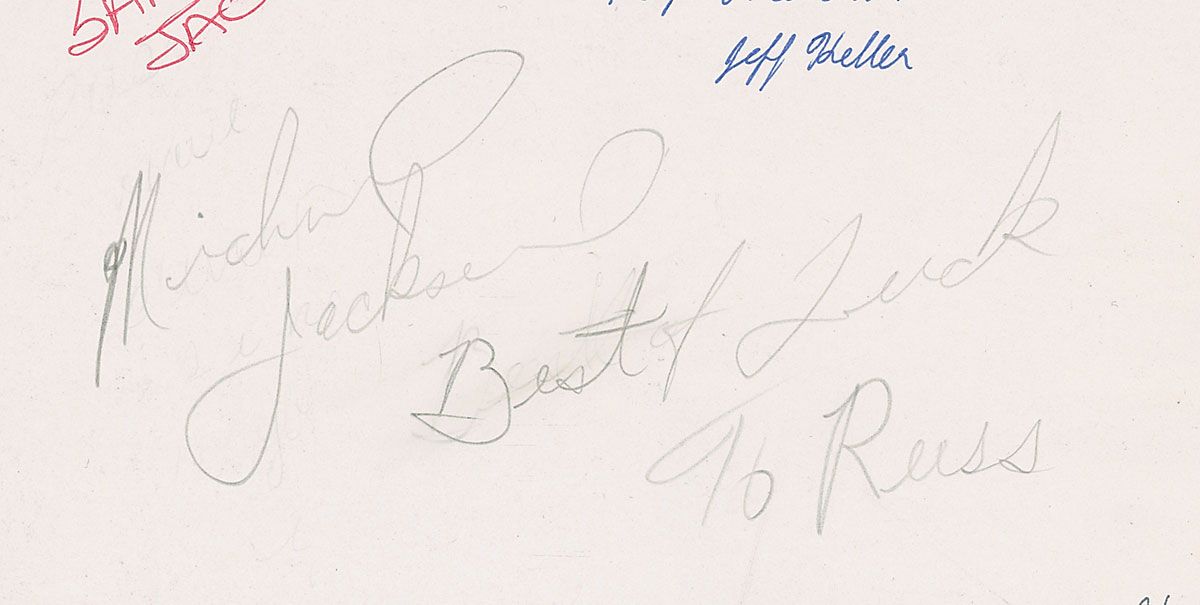 JAC
Jeff Heller
Michael
Jackson
Best of Luck
To Russ